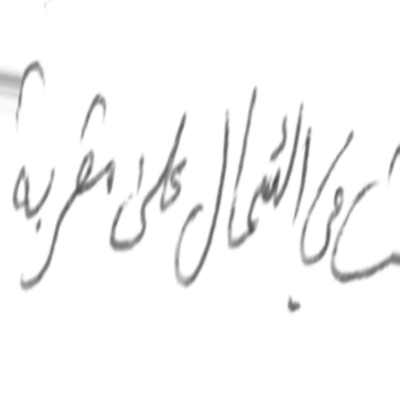 في الشمال على مقربة